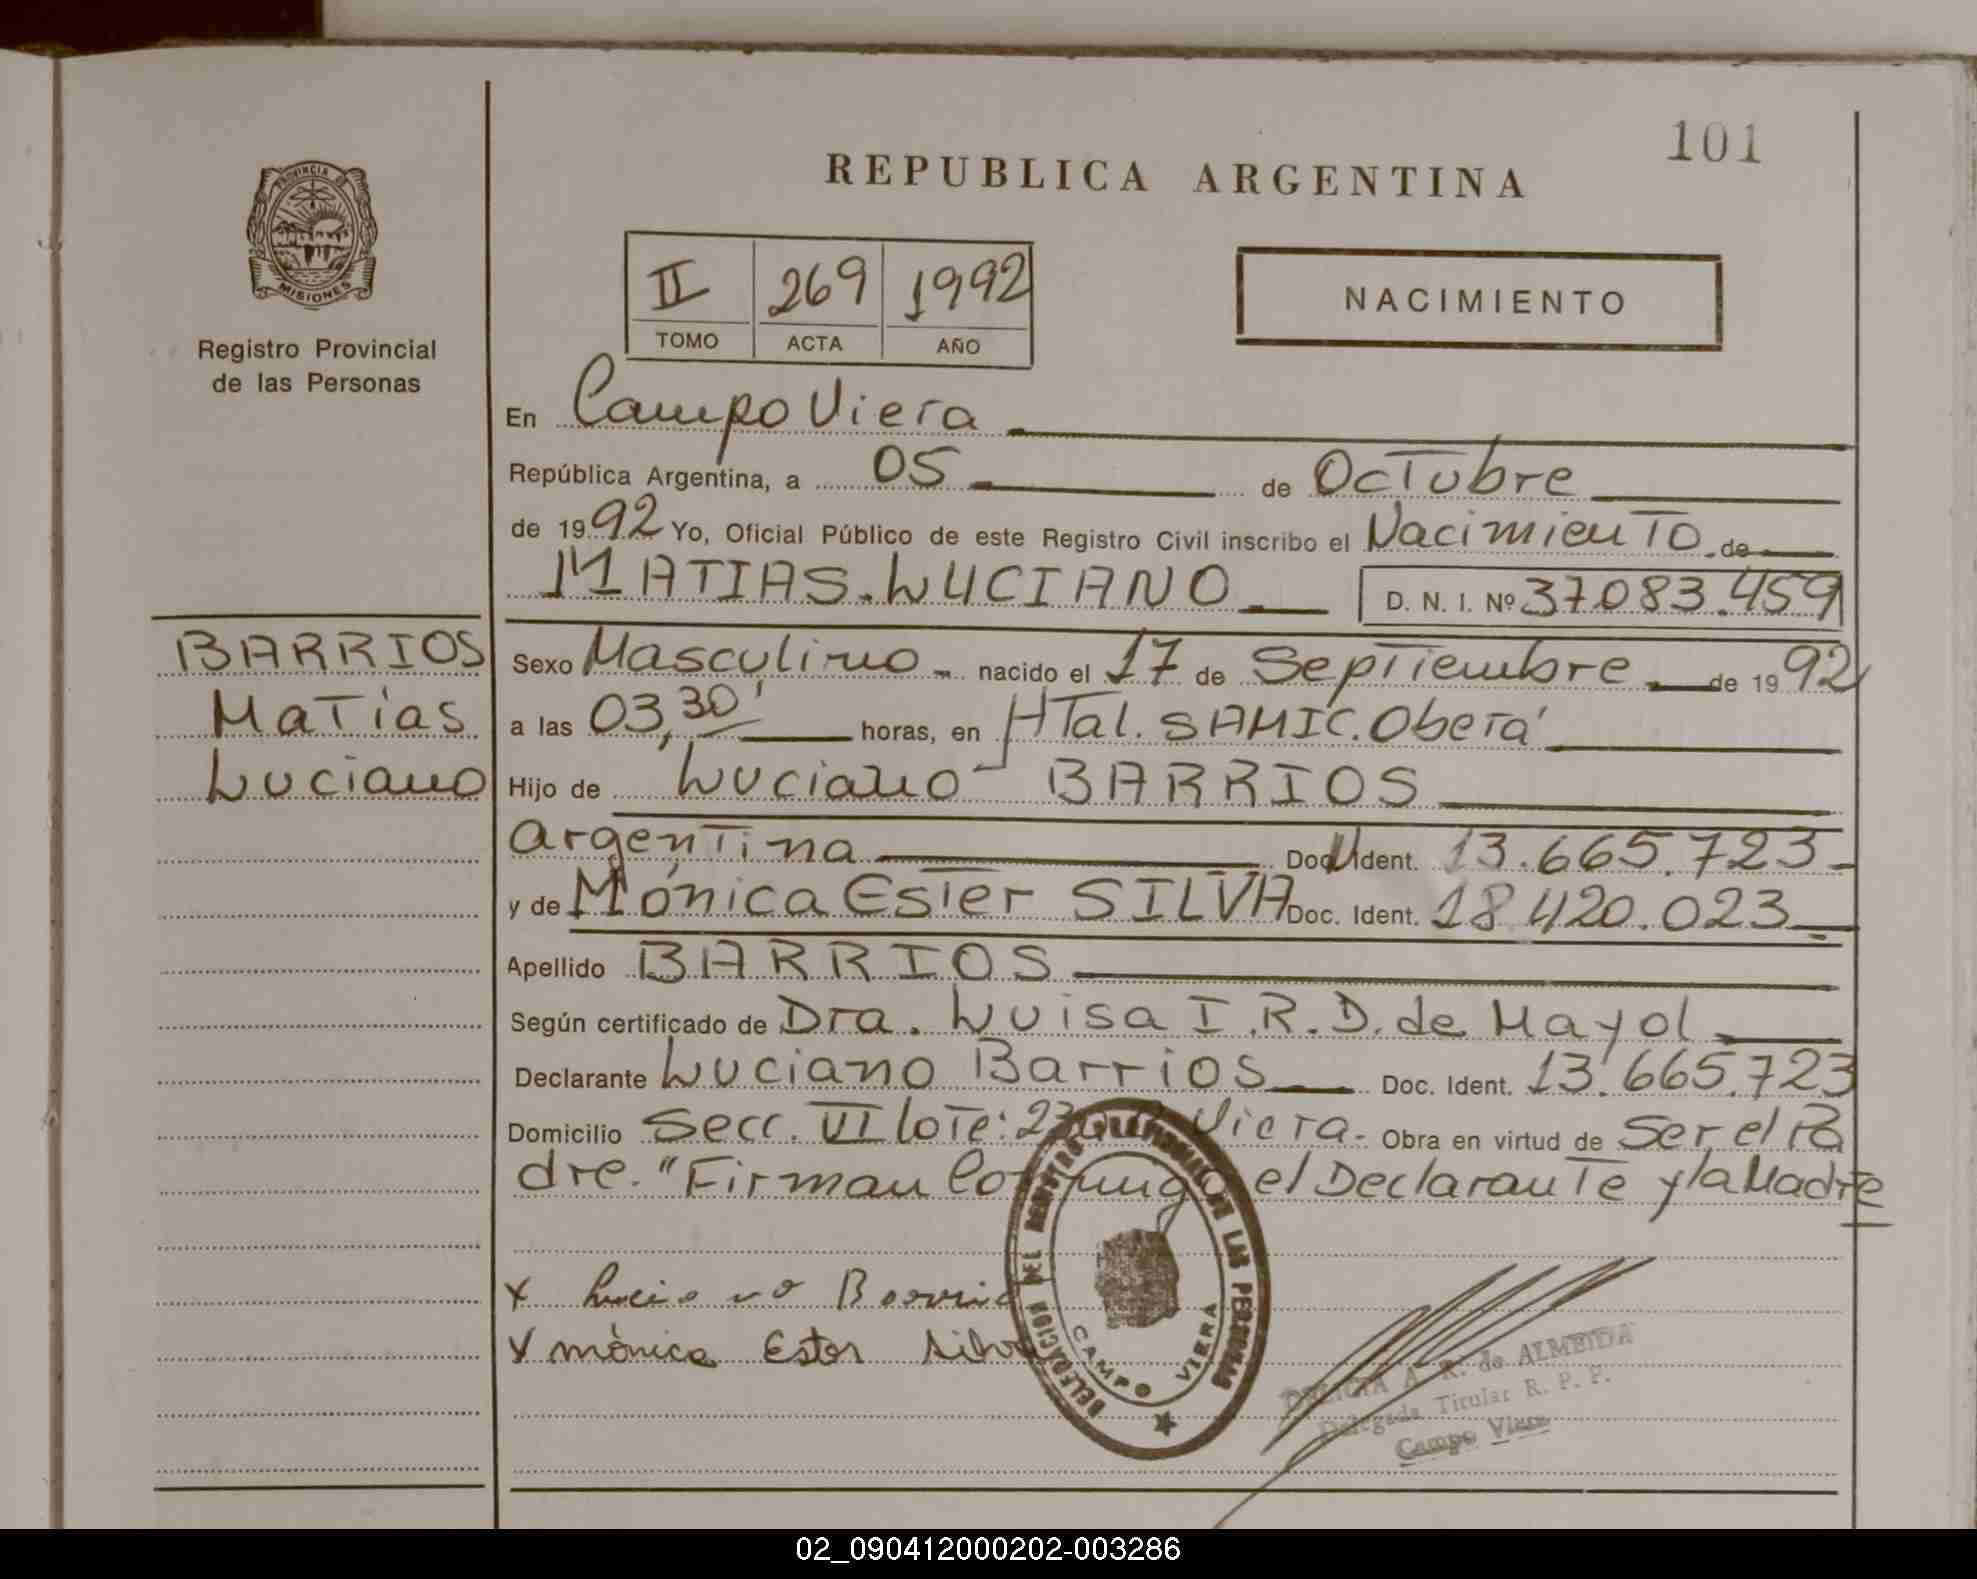 101
REPUBLICA ARGENTINA
PROVINCIA DE
MISIONES
Registro Provincial
de las Personas
II 269 1992
TOMO ACTA AÑO
NACIMIENTO
En Campo Viera
República Argentina, a 05 de Octubre
de 1992 Yo, Oficial Público de este Registro Civil inscribo el Nacimiento de
MATIAS LUCIANO D. N. I. Nº 37083.459
BARRIOS
Matías
Luciano
Sexo Masculino nacido el 17 de Septiembre de 1992
a las 03,30' horas, en HTal. SAMIC. Oberá
Hijo de Luciano BARRIOS
Argentina Doc. Ident. 13.665.723
y de Mónica Ester SILVA Doc. Ident. 18420.023
Apellido BARRIOS
Según certificado de Dra. Luisa I.R.D. de Mayol
Declarante Luciano Barrios Doc. Ident. 13.665.723
Domicilio Secc. VI lote: Viera. Obra en virtud de Ser el Pa
dre. "Firman el Declarante y la Madre
x Luciano Barrios
x mònica Ester Silva
DELEGACION DEL REGISTRO DE LAS PERSONAS
CAMPO VIERA
A. R. de ALMEIDA
Delegada Titular R. P. P.
Campo Viera
02_090412000202-003286